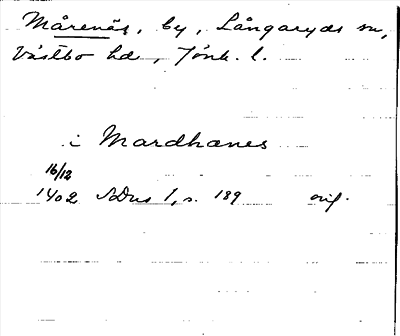 Mårenäs, by, Långaryds sn,
Västbo hd, Jönk. l.
i Mardhanes
16/12
1402 SDns 1, s. 189 orig.